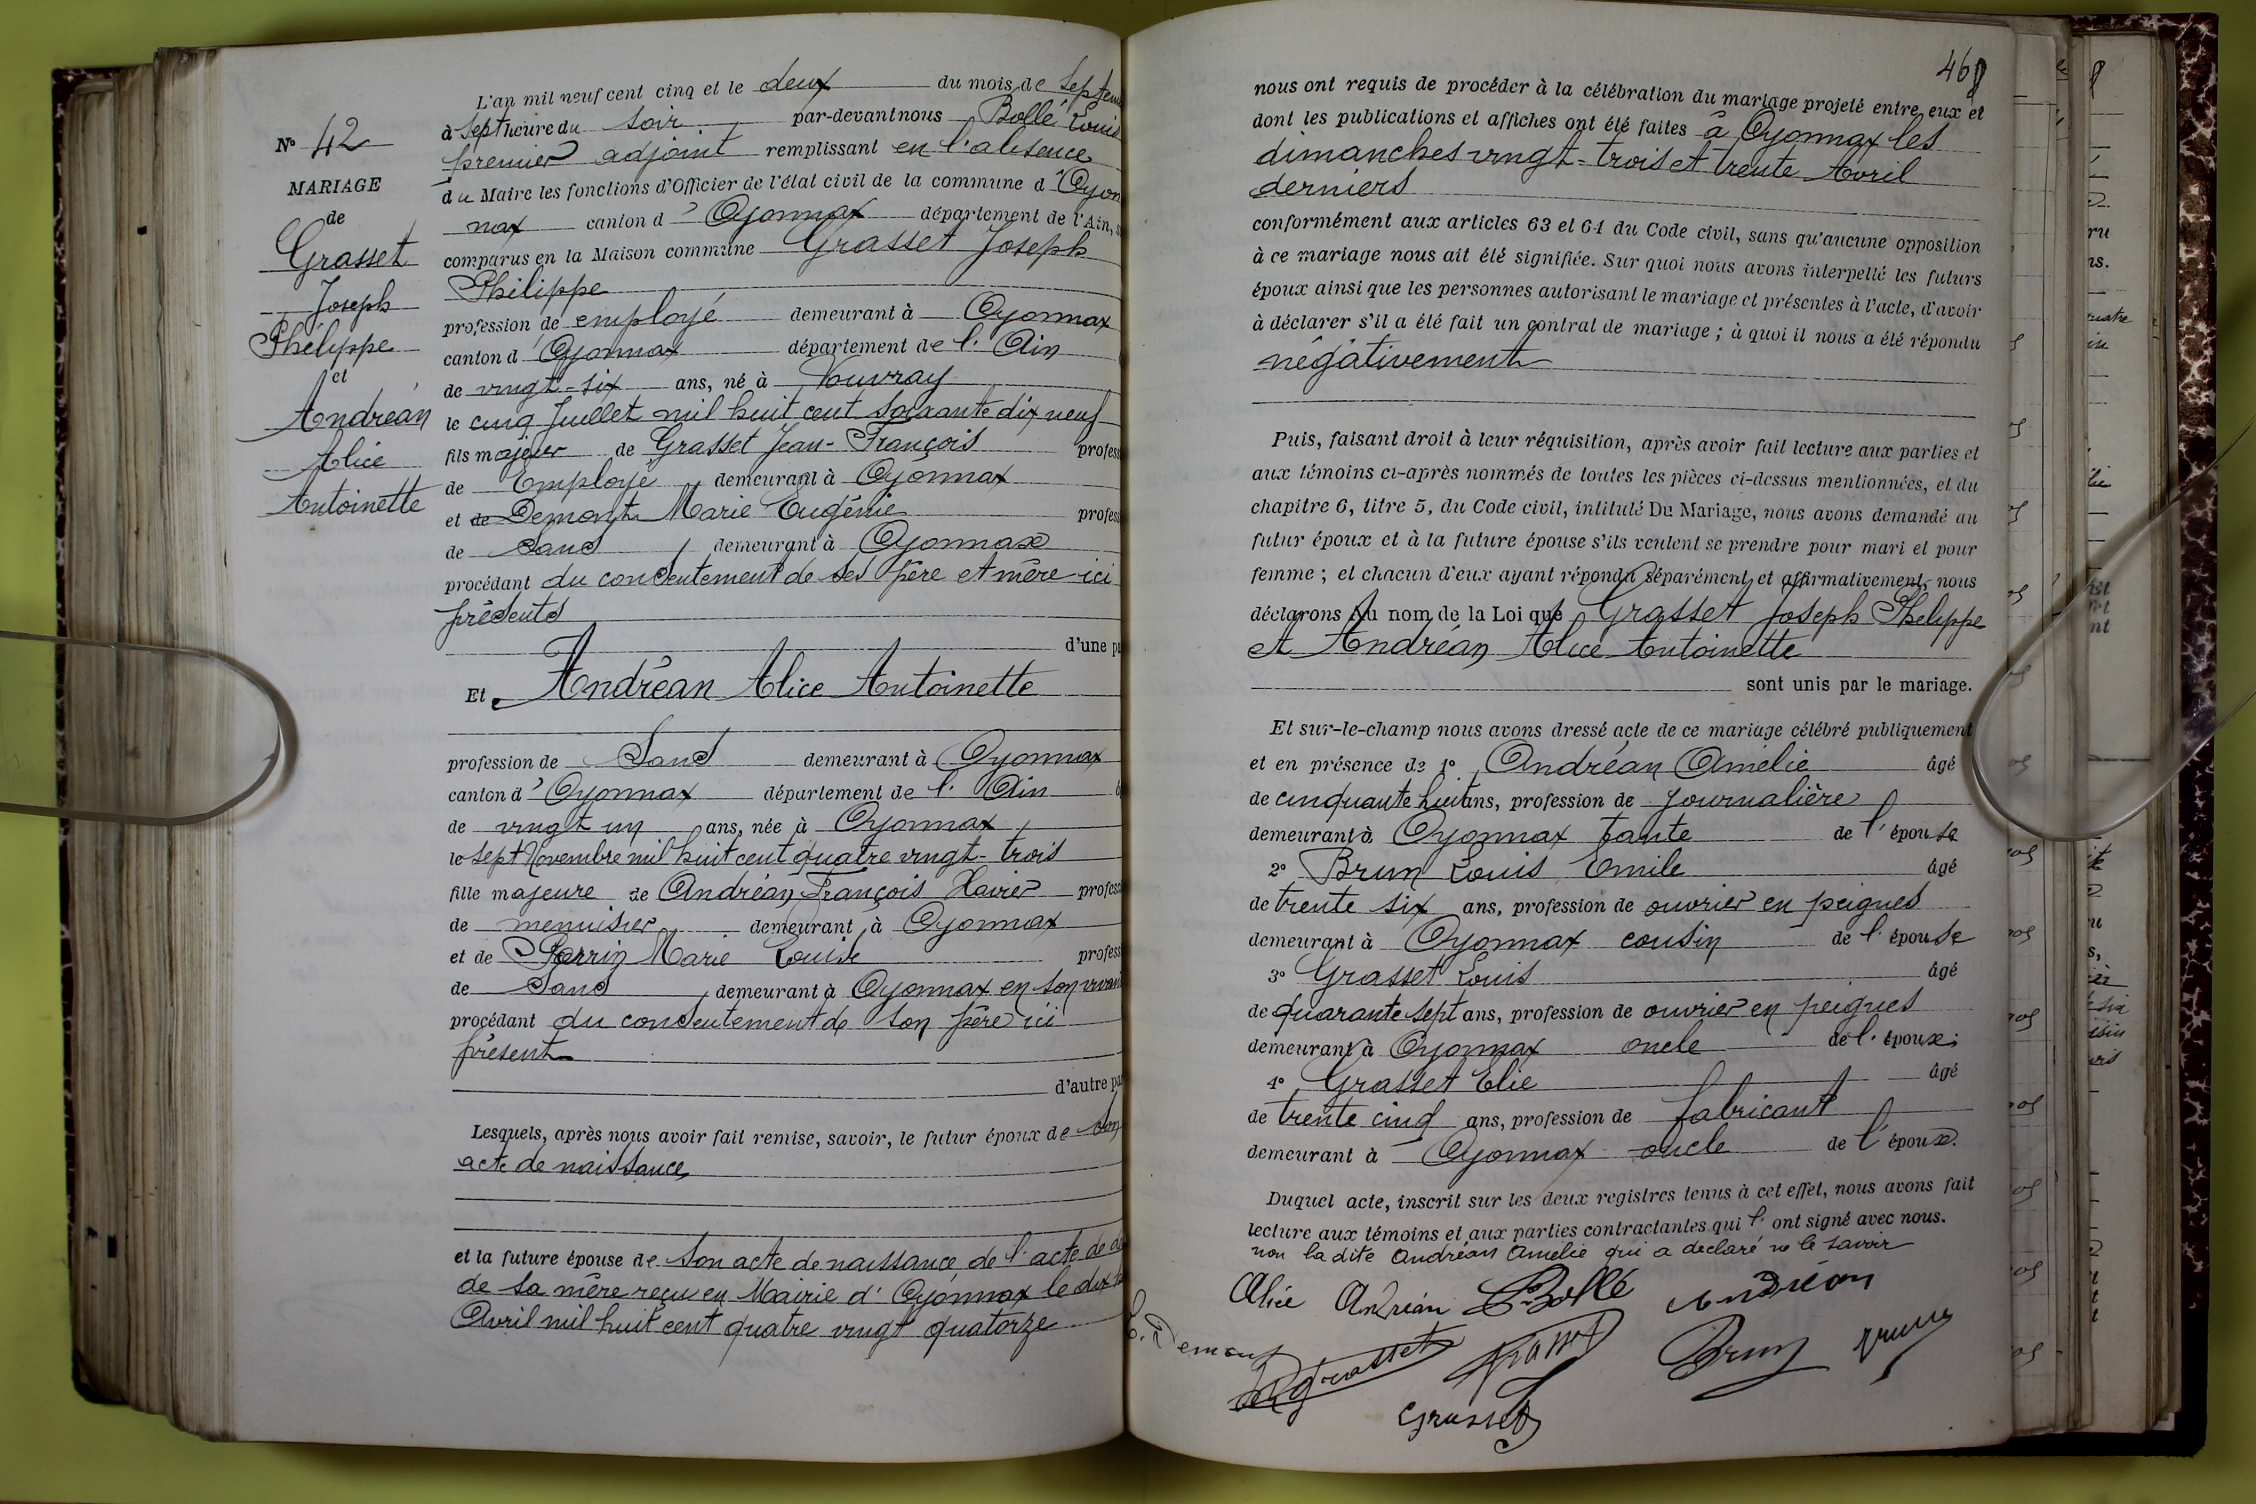 L'an mil neuf cent cinq et le deux du mois de Septem
à Sept heure du soir par-devant nous Bollé Louis
premier adjoint remplissant en l'absence
du Maire les fonctions d'Officier de l'état civil de la commune d'Oyon
nax canton d'Oyonnax département de l'Ain,
comparus en la Maison commune Grasset Joseph
Philippe
profession de employé demeurant à Oyonnax
canton d'Oyonnax département de l'Ain
de vingt-six ans, né à Vouvray
le cinq Juillet mil huit cent soixante dix neuf
fils majeur de Grasset Jean-François profess
de Employé demeurant à Oyonnax
et de Demont Marie Eugénie profess
de Sans demeurant à Oyonnax
procédant du consentement de ses père et mère ici
présents
d'une pa
Et Andréan Alice Antoinette
profession de Sans demeurant à Oyonnax
canton d'Oyonnax département de l'Ain
de vingt un ans, née à Oyonnax
le sept Novembre mil huit cent quatre vingt-trois
fille majeure de Andréan François Xavier profess
de menuisier demeurant à Oyonnax
et de Perrin Marie Louise profess
de Sans demeurant à Oyonnax en son vivant
procédant du consentement de son père ici
présent
d'autre pa
Lesquels, après nous avoir fait remise, savoir, le futur époux de son
acte de naissance
et la future épouse de son acte de naissance de l'acte de dé
de sa mère reçu en Mairie d'Oyonnax le dix
Avril mil huit cent quatre vingt quatorze
No 42
MARIAGE
de
Grasset
Joseph
Phélippe
et
Andréan
Alice
Antoinette
468
nous ont requis de procéder à la célébration du mariage projeté entre eux et
dont les publications et affiches ont été faites à Oyonnax les
dimanches vingt-trois et trente Avril
derniers
conformément aux articles 63 et 64 du Code civil, sans qu'aucune opposition
à ce mariage nous ait été signifiée. Sur quoi nous avons interpellé les futurs
époux ainsi que les personnes autorisant le mariage et présentes à l'acte, d'avoir
à déclarer s'il a été fait un contrat de mariage ; à quoi il nous a été répondu
négativement
Puis, faisant droit à leur réquisition, après avoir fait lecture aux parties et
aux témoins ci-après nommés de toutes les pièces ci-dessus mentionnées, et du
chapitre 6, titre 5, du Code civil, intitulé Du Mariage, nous avons demandé au
futur époux et à la future épouse s'ils veulent se prendre pour mari et pour
femme ; et chacun d'eux ayant répondu séparément et affirmativement, nous
déclarons Au nom de la Loi que Grasset Joseph Phelippe
et Andréan Alice Antoinette
sont unis par le mariage.
Et sur-le-champ nous avons dressé acte de ce mariage célébré publiquement
et en présence de 1o Andréan Amélie âgé
de cinquante huit ans, profession de Journalière
demeurant à Oyonnax tante de l'épouse
2o Brun Louis Emile âgé
de trente six ans, profession de ouvrier en peignes
demeurant à Oyonnax cousin de l'épouse
3o Grasset Louis âgé
de quarante sept ans, profession de ouvrier en peignes
demeurant à Oyonnax oncle de l'époux;
4o Grasset Elie âgé
de trente cinq ans, profession de fabricant
demeurant à Oyonnax oncle de l'époux.
Duquel acte, inscrit sur les deux registres tenus à cet effet, nous avons fait
lecture aux témoins et aux parties contractantes qui l'ont signé avec nous.
non la dite Andréan Amélie qui a déclaré ne le savoir
Alice Andréan L. Bollé Andréan
E. Demont
Grasset Grasset Brun
Grasset